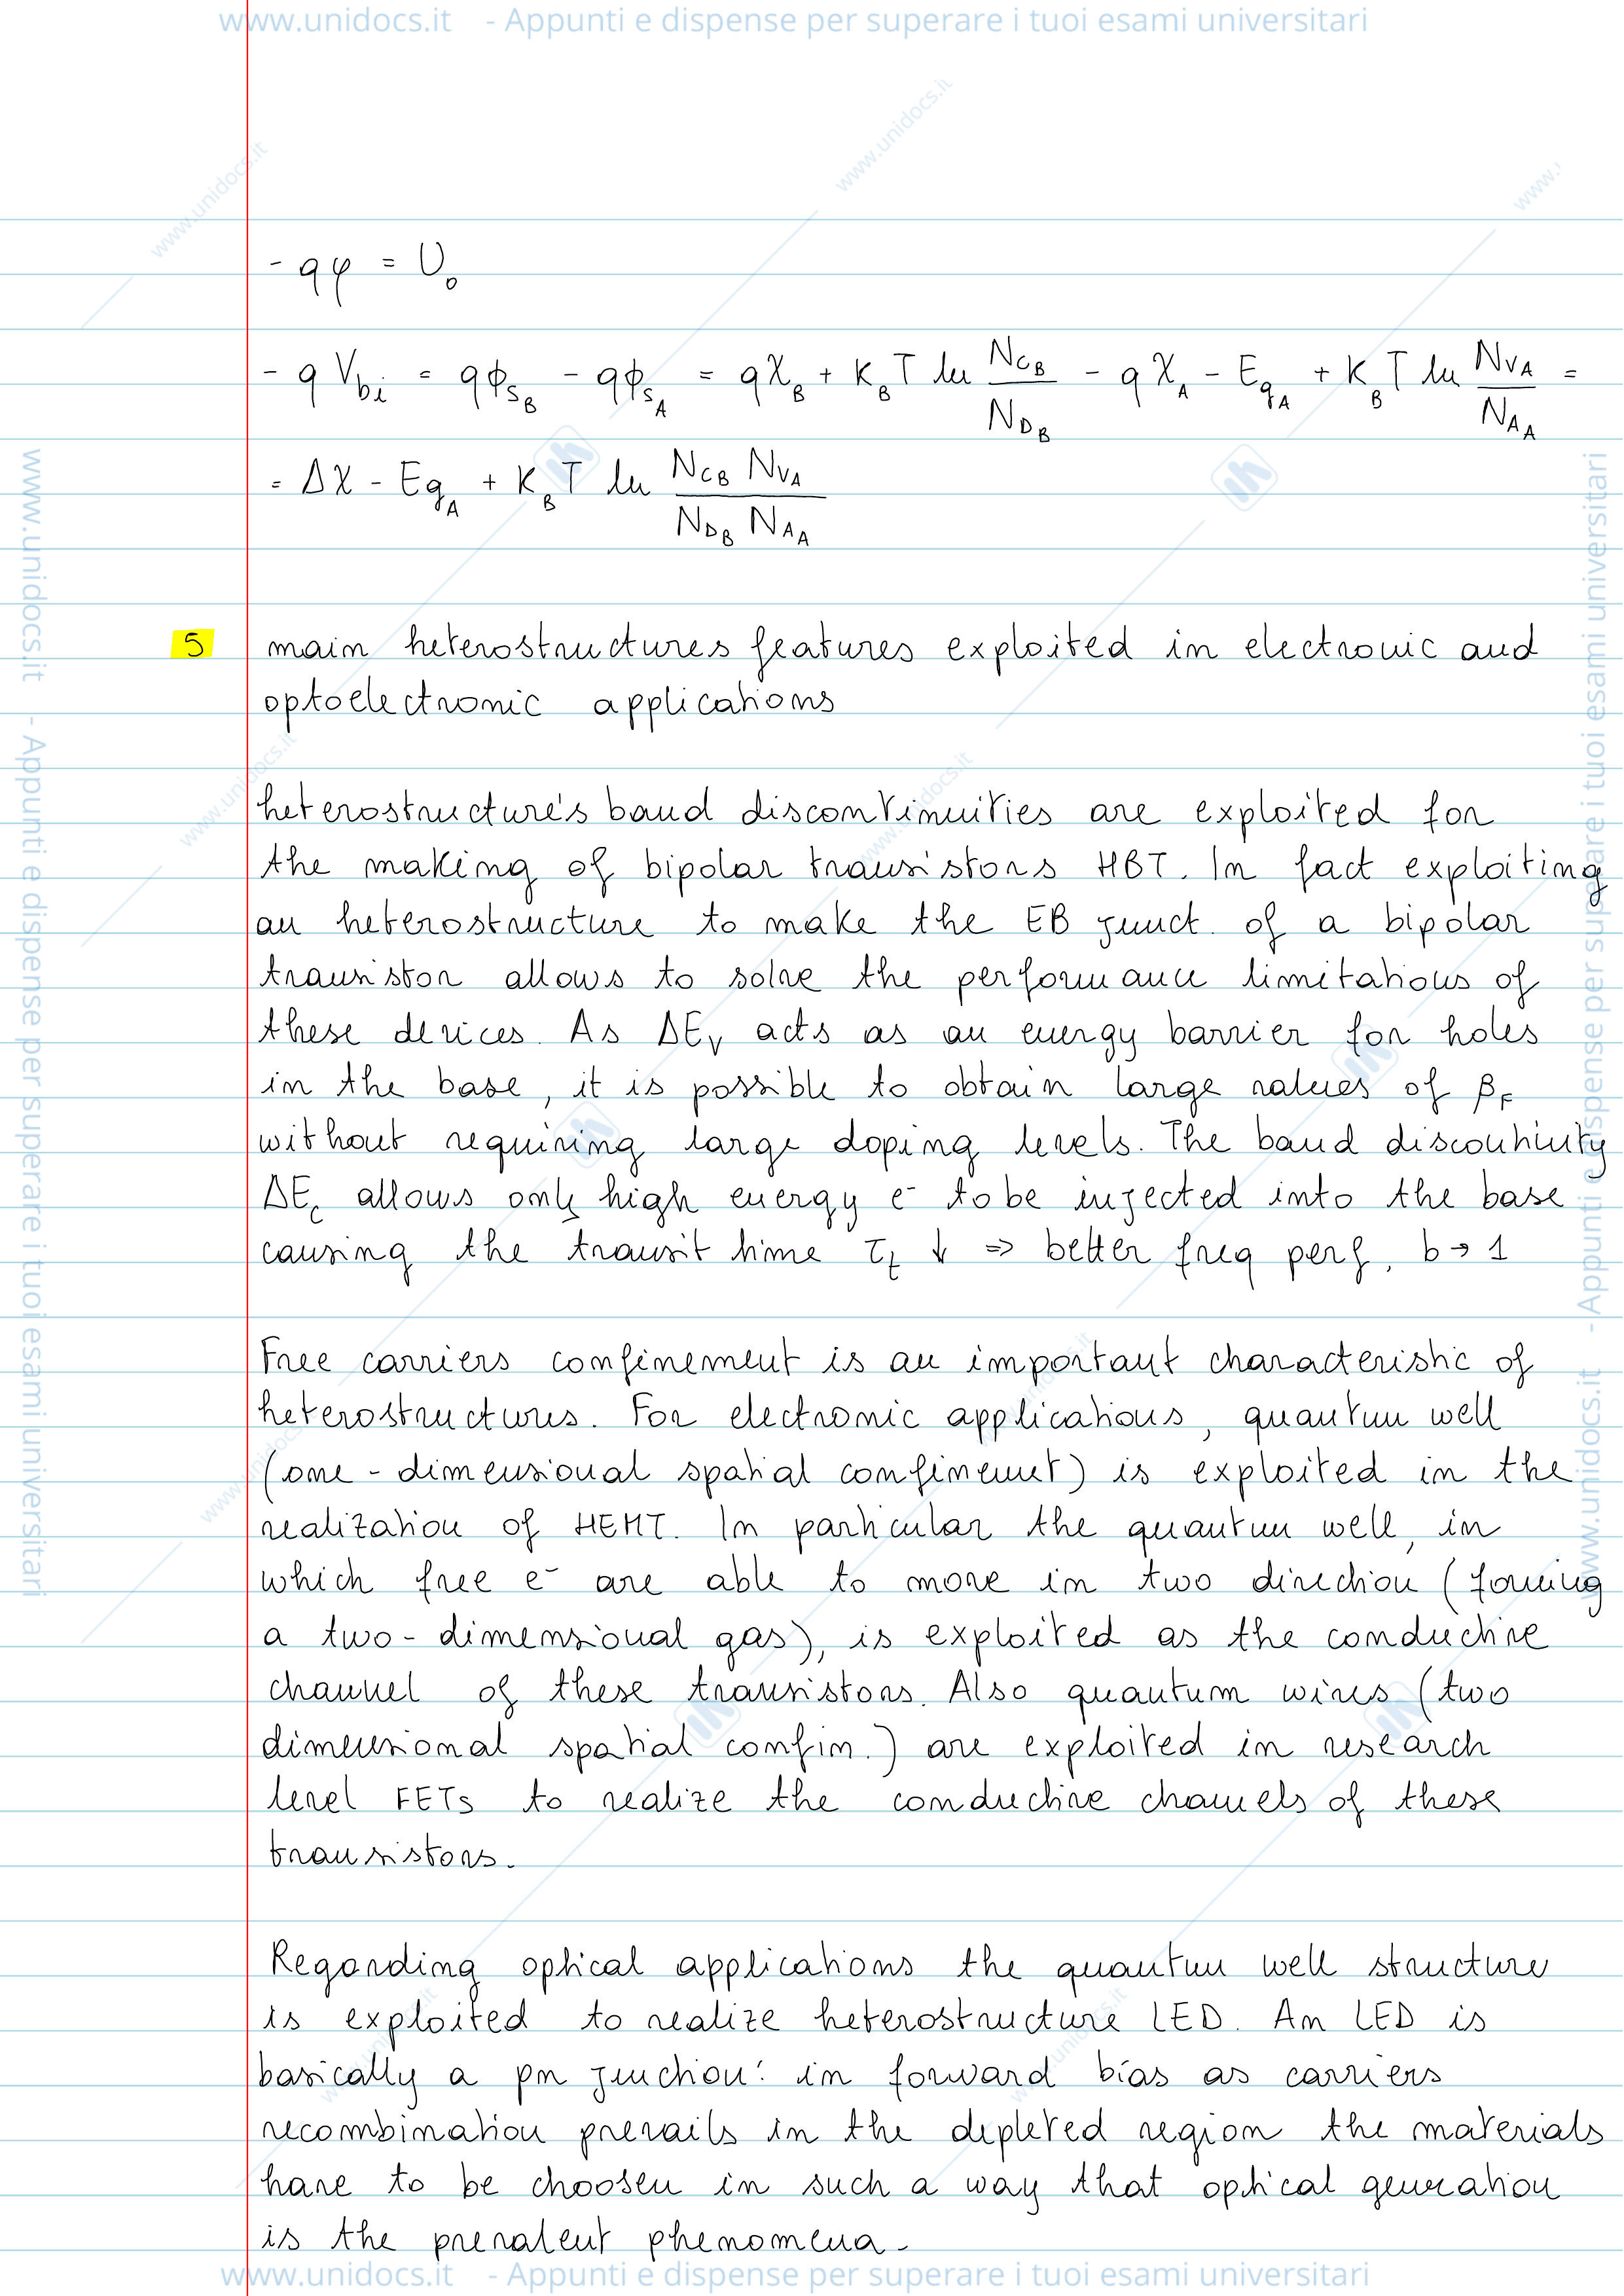 www.unidocs.it - Appunti e dispense per superare i tuoi esami universitari
- qφ = U₀
- q V_bi = qϕ_S_B - qϕ_S_A = qχ_B + K_B T ln N_CB / N_D_B - qχ_A - E_g_A + K_B T ln N_VA / N_A_A =
= Δχ - Eg_A + K_B T ln N_CB N_VA / N_D_B N_A_A
5 main heterostructures features exploited in electronic and
optoelectronic applications
heterostructure's band discontinuities are exploited for
the making of bipolar transistors HBT. In fact exploiting
an heterostructure to make the EB junct. of a bipolar
transistor allows to solve the performance limitations of
these devices. As ΔE_V acts as an energy barrier for holes
in the base, it is possible to obtain large values of β_F
without requiring large doping levels. The band discontinuity
ΔE_c allows only high energy e⁻ to be injected into the base
causing the transit time τ_t ↓ ⇒ better freq perf, b → 1
Free carriers confinement is an important characteristic of
heterostructures. For electronic applications, quantum well
(one-dimensional spatial confinement) is exploited in the
realization of HEMT. In particular the quantum well, in
which free e⁻ are able to move in two direction (forming
a two-dimensional gas), is exploited as the conductive
channel of these transistors. Also quantum wires (two
dimensional spatial confin.) are exploited in research
level FETs to realize the conductive channels of these
transistors.
Regarding optical applications the quantum well structure
is exploited to realize heterostructure LED. An LED is
basically a pn junction: in forward bias as carriers
recombination prevails in the depleted region the materials
have to be choosen in such a way that optical generation
is the prevalent phenomena.
www.unidocs.it - Appunti e dispense per superare i tuoi esami universitari